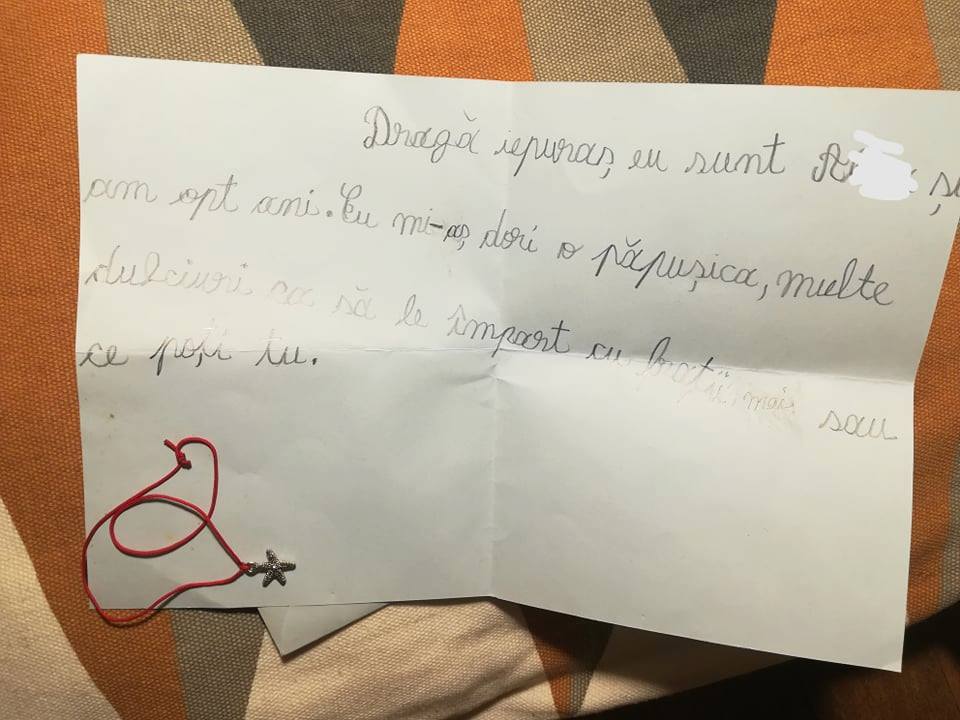 Dragă iepuraș, eu sunt și
am opt ani. Eu mi-aș dori o păpușica, multe
dulciuri ca să le împart cu frații mai sau
ce poți tu.